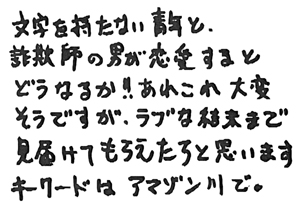 文字を持たない青年と、
詐欺師の男が恋愛すると
どうなるか!!あれこれ大変
そうですが、ラブな結末まで
見届けてもらえたらと思います
キーワードは アマゾン川で。